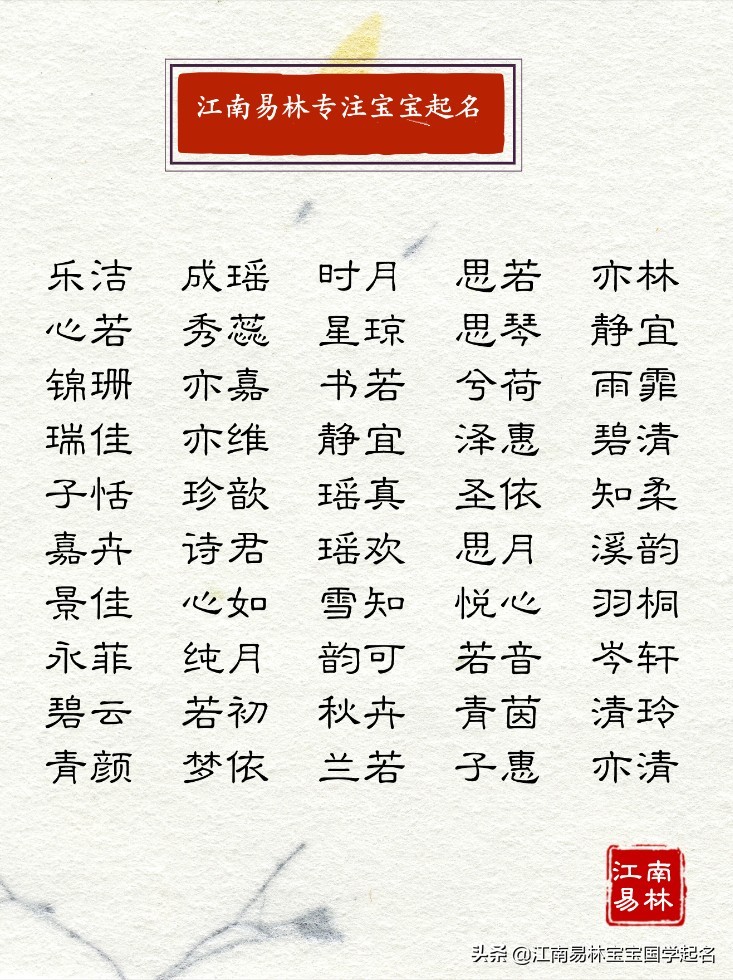 江南易林专注宝宝起名
乐洁 成瑶 时月 思若 亦林
心若 秀蕊 星琼 思琴 静宜
锦珊 亦嘉 书若 兮荷 雨霏
瑞佳 亦维 静宜 泽惠 碧清
子恬 珍歆 瑶真 圣依 知柔
嘉卉 诗君 瑶欢 思月 溪韵
景佳 心如 雪知 悦心 羽桐
永菲 纯月 韵可 若音 岑轩
碧云 若初 秋卉 青茵 清玲
青颜 梦依 兰若 子惠 亦清
江南
易林
头条 @江南易林宝宝国学起名